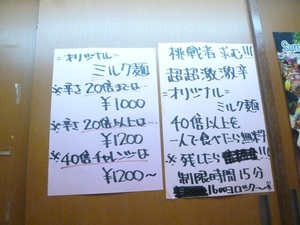 =オリジナル=
ミルク麺
※辛さ20倍までは…
¥1000
※辛さ20倍以上は…
¥1200
※40倍チャレンジは…
¥1200〜
挑戦者求む!!!
超超激激辛
=オリジナル=
ミルク麺
40倍以上を
一人で食べたら無料
※残したら
!!!
制限時間15分